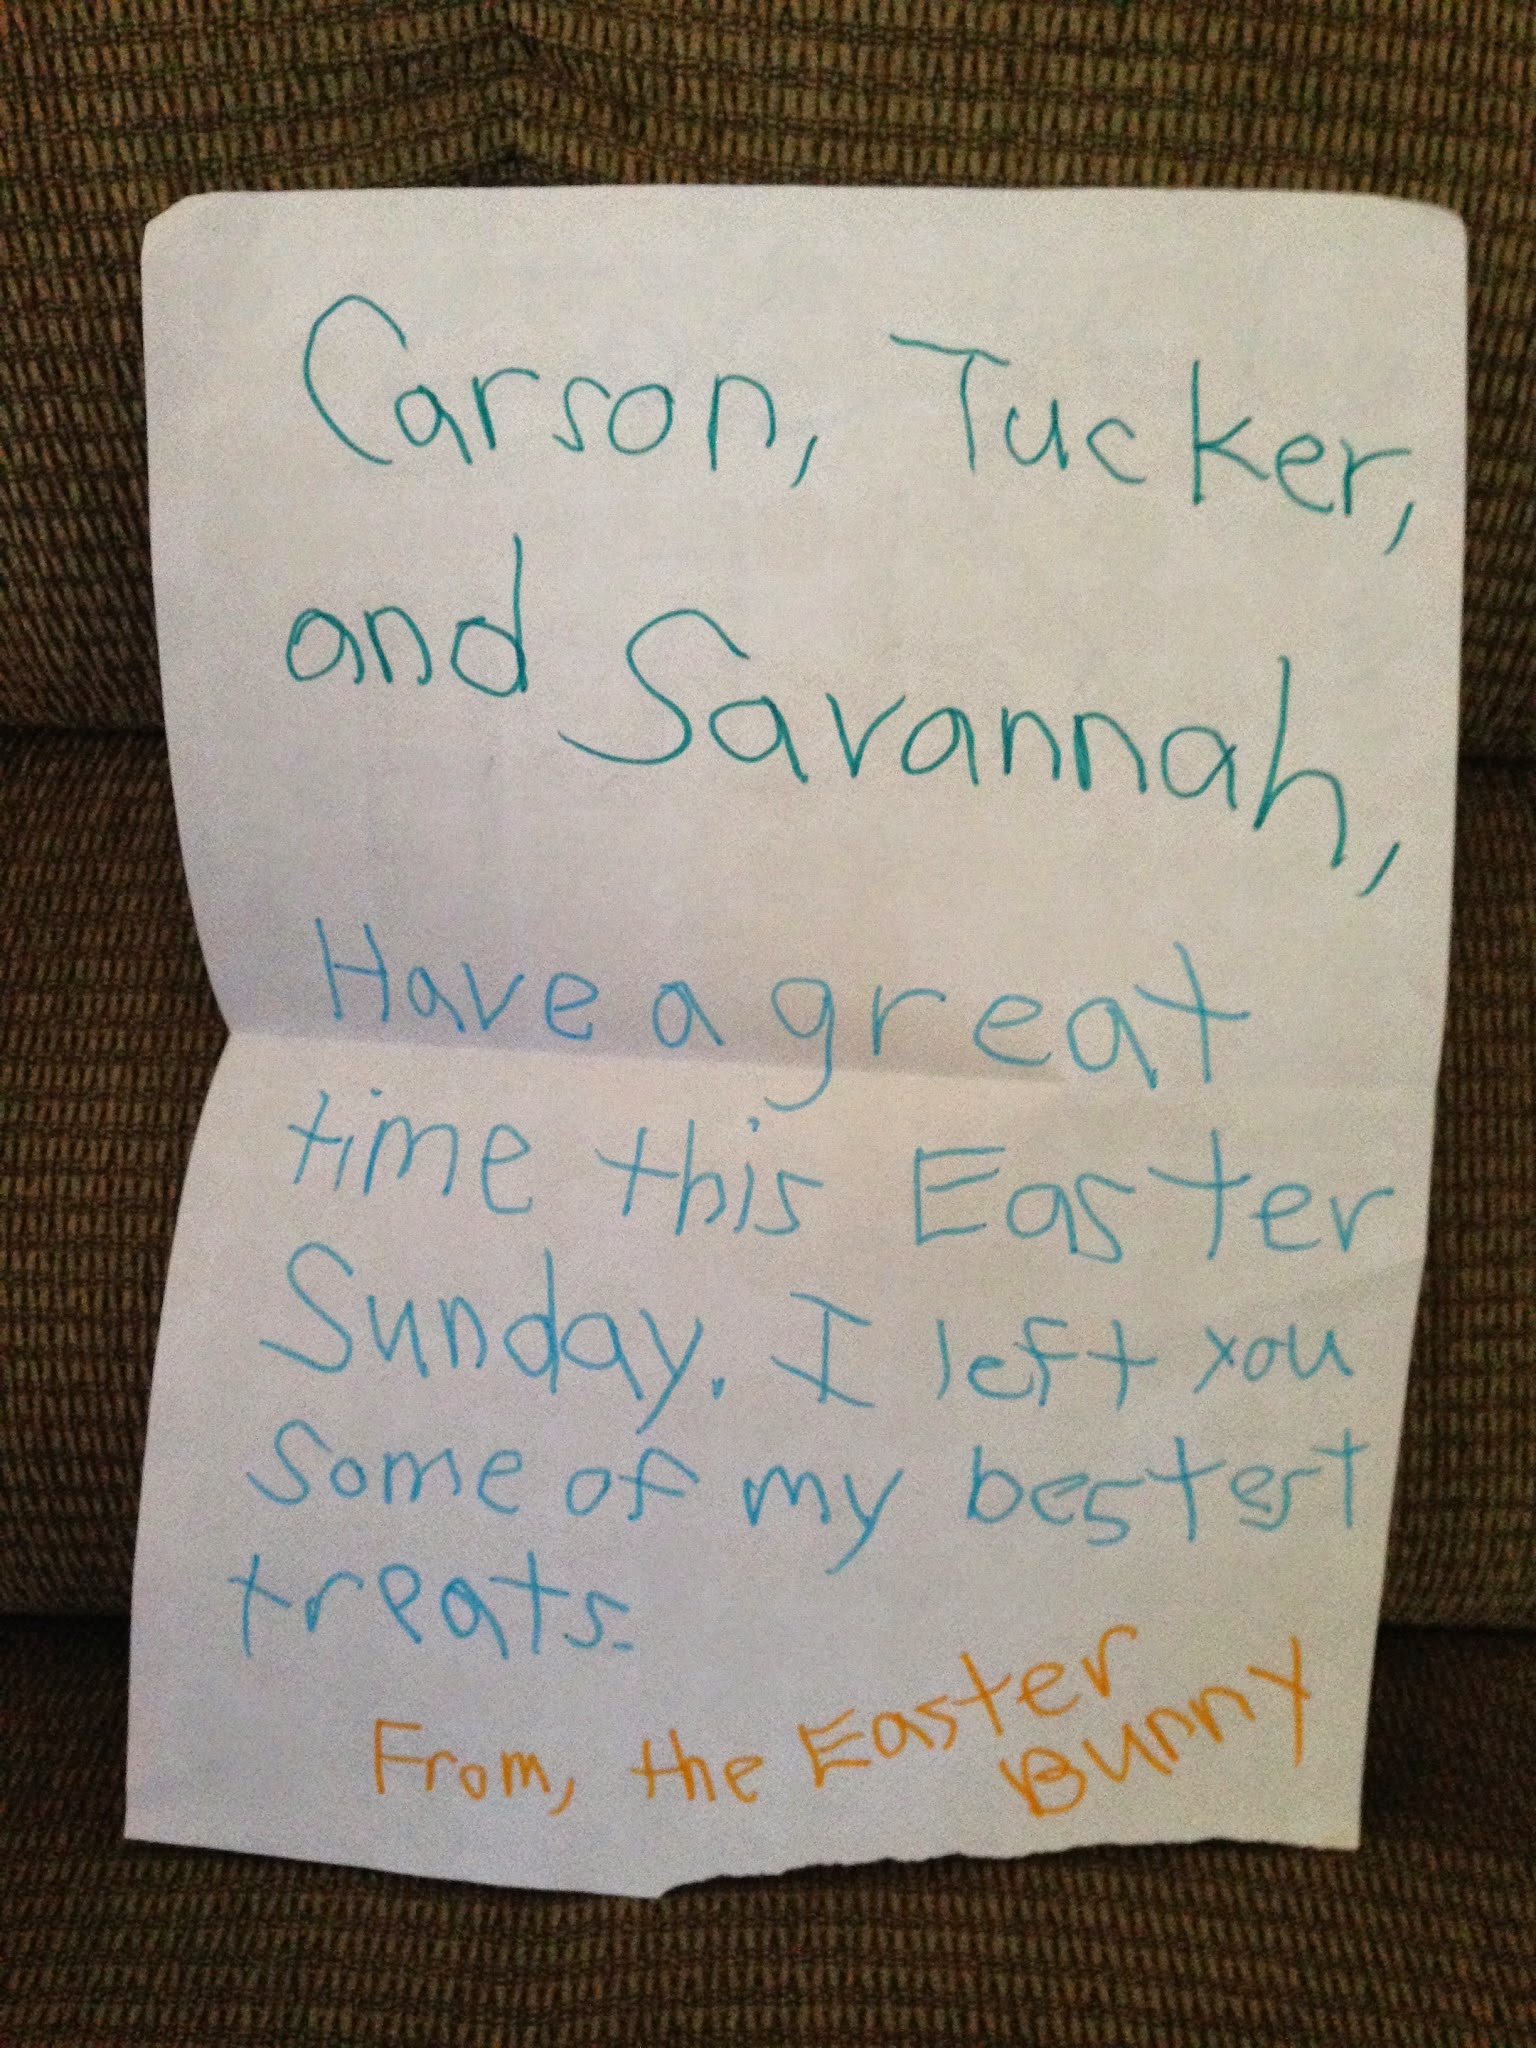 Carson, Tucker,
and Savannah,
Have a great
time this Easter
Sunday. I left you
Some of my bestest
treats.
From, the Easter
Bunny